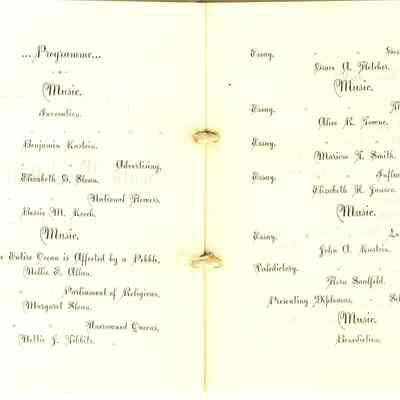 ...Programme...
Music.
Invocation.
Benjamin Kastein.
Advertising,
Elizabeth B. Sloan.
National Flowers,
Bessie M. Keech.
Music.
Entire Ocean is Affected by a Pebble,
Nellie E. Allan.
Parliament of Religions,
Margaret Sloan.
Uncrowned Queens,
Nellie J. Tibbits.
Essay,
Grace A. Fletcher.
Music.
Essay,
Alice R. Towne.
Essay,
Marion H. Smith.
Essay,
Elizabeth M. Jansen.
Music.
Essay,
John A. Kastein.
Valedictory,
Flora Sandfeld.
Presenting Diplomas,
Music.
Benediction.